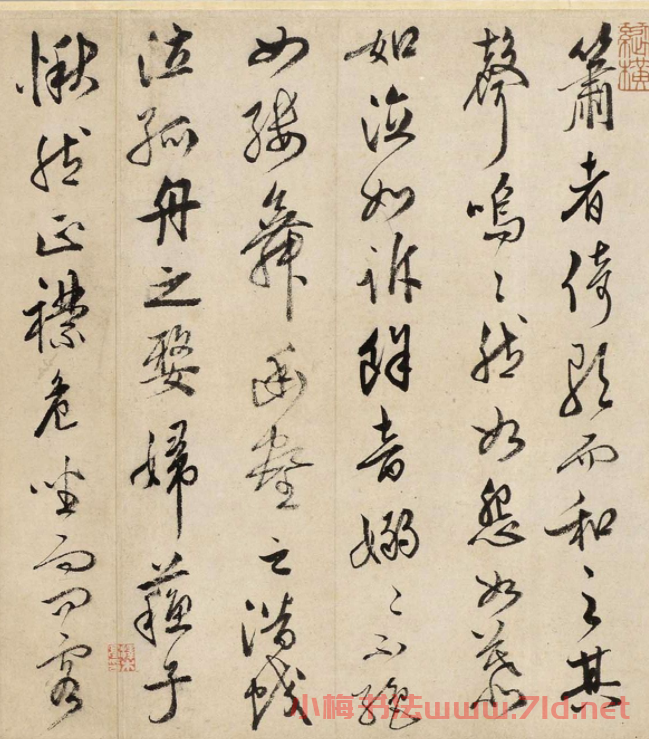 簫者倚歌而和之其
聲嗚〻然如怨如慕
如泣如訴餘音嫋〻不絕
如縷舞幽壑之潛蛟
泣孤舟之嫠婦蘇子
愀然正襟危坐而問客
小梅书法www.7ld.net